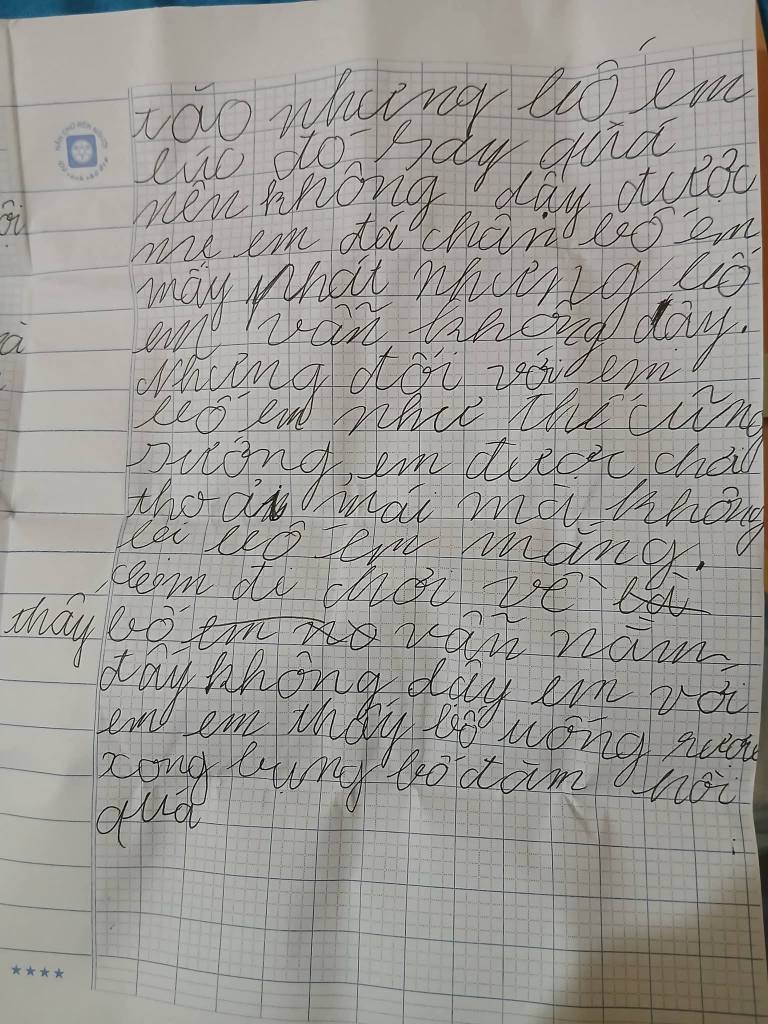 xão nhưng bố em
lúc đó say quá
nên không dậy được
mẹ em đá chân bố em
mấy phát nhưng bố
em vẫn không dậy.
Nhưng đối với em
bố em như thế cũng
sướng em được chơi
thoải mái mà không
bị bố em mắng.
Em đi chơi về
thấy bố em no vẫn nằm
đấy không dậy em với
em em thấy bố uống rượu
xong bụng bố đàm hôi
quá